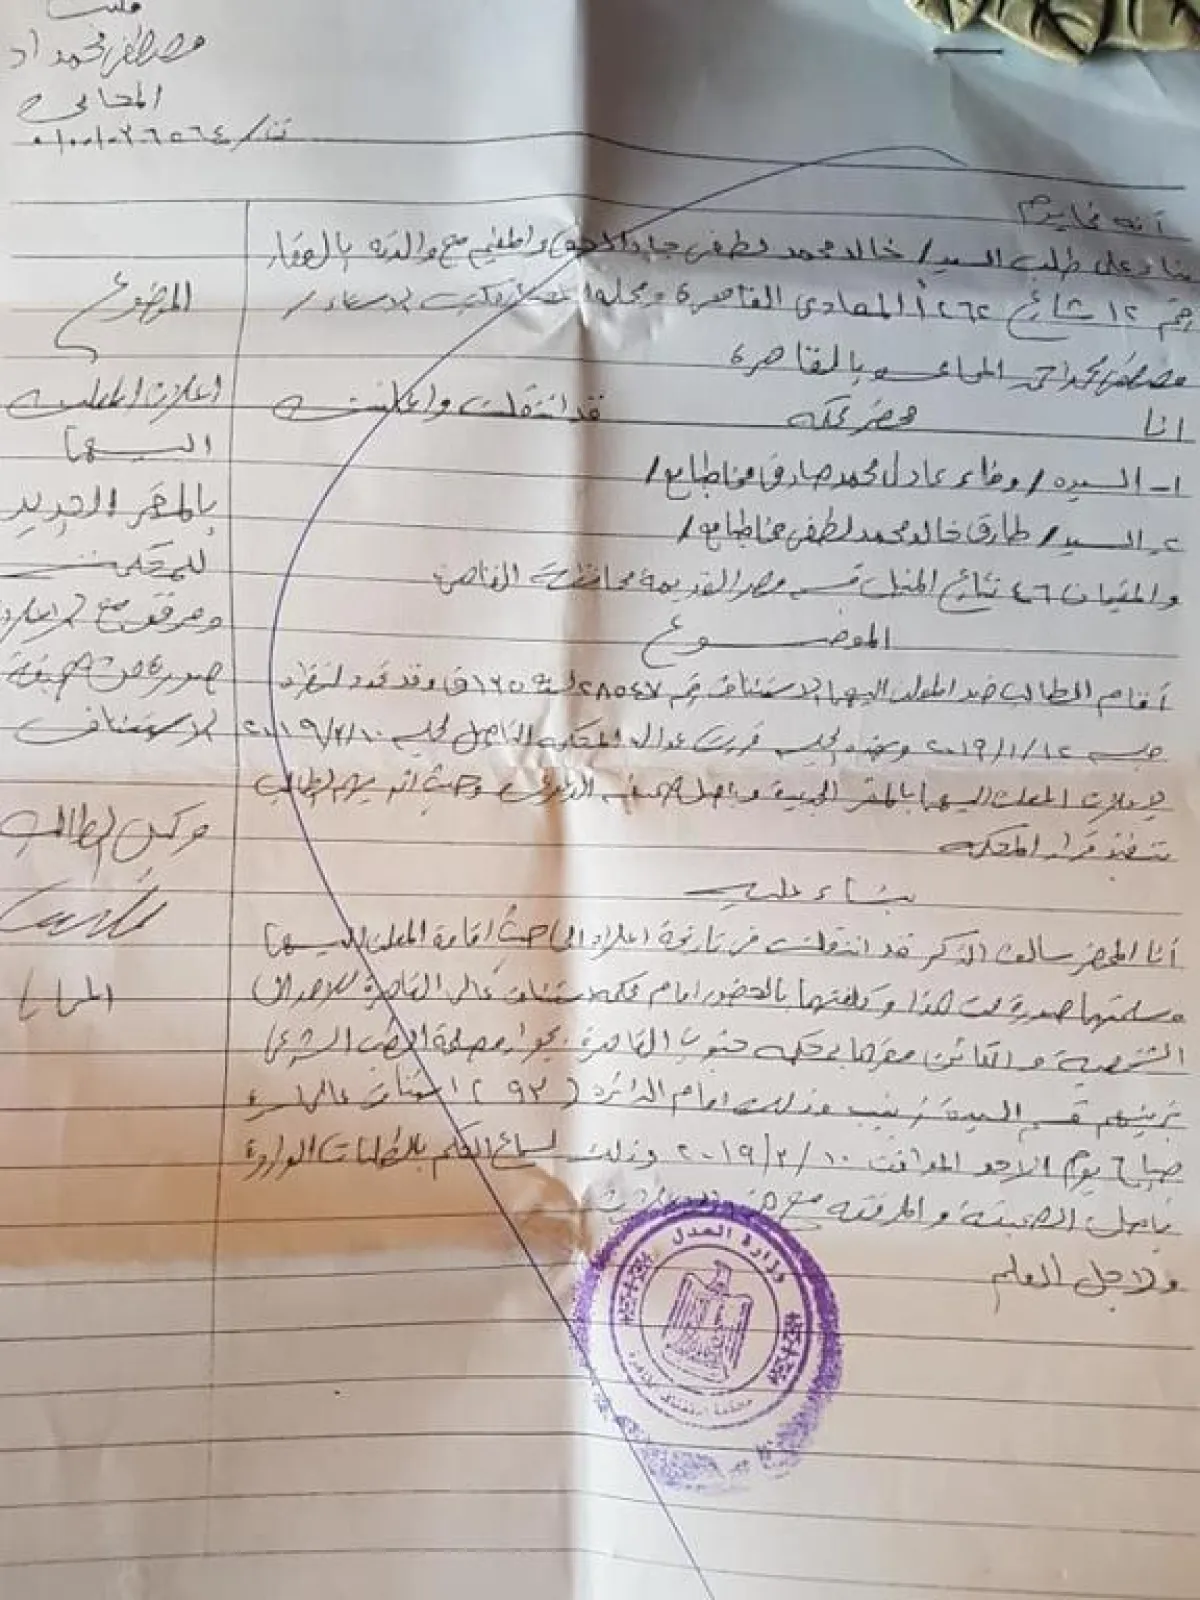 مكتب
مصطفى محمد أحمد
المحامى
أنه فى يوم
بناء على طلب السيد / خالد محمد لطفى جاد والمقيم مع والدته بالعقار
رقم ١٢ شارع ٢٦٢ المعادى القاهرة ومحله المختار مكتب الاستاذ /
مصطفى محمد احمد المحامى بالقاهرة
انا محضر محكمة قد انتقلت واعلنت
١- السيده / وفاء عادل محمد صادق مخاطبا مع /
٢- السيد / طارق خالد محمد لطفى مخاطبا مع /
والمقيمان ٤٦ شارع المنيل قسم مصر القديمة محافظة القاهرة
الموضوع
أقام الطالب ضد المعلن اليهما الاستئناف رقم ٢٨٥٤٧ لسنة ١٣٥ ق وقد تحدد لنظره
جلسة ٢٠١٩/١/١٢ وبهذه الجلسة قررت عدالة المحكمة التأجيل لجلسة ٢٠١٩/٢/١٠
لإعلان المعلن اليهما بالمقر الجديد وبأصل صحيفة الدعوى وحيث انه يهم الطالب
تنفيذ قرار المحكمة
بناء عليه
أنا المحضر سالف الذكر قد انتقلت فى تاريخه اعلاه الى حيث إقامة المعلن اليهما
وسلمتهما صورة من هذا وكلفتهما بالحضور امام محكمة استئناف عالى القاهرة للاحوال
الشخصية والكائن مقرها بمحكمة جنوب القاهرة بجوار مصلحة الطب الشرعى
بزينهم قسم السيدة زينب وذلك امام الدائرة (٩٣) استئناف عالى اسرة
صباح يوم الاحد الموافق ٢٠١٩/٢/١٠ وذلك لسماع الحكم بالطلبات الواردة
بأصل الصحيفة والمرفقة مع
ولاجل العلم
الموضوع
اعلان المعلن
اليهما
بالمقر الجديد
للمعلن
ومرفق مع الاعلان
صورة من صحيفة
الاستئناف
وكيل الطالب
المحامى
وزارة العدل
محكمة استئناف القاهرة